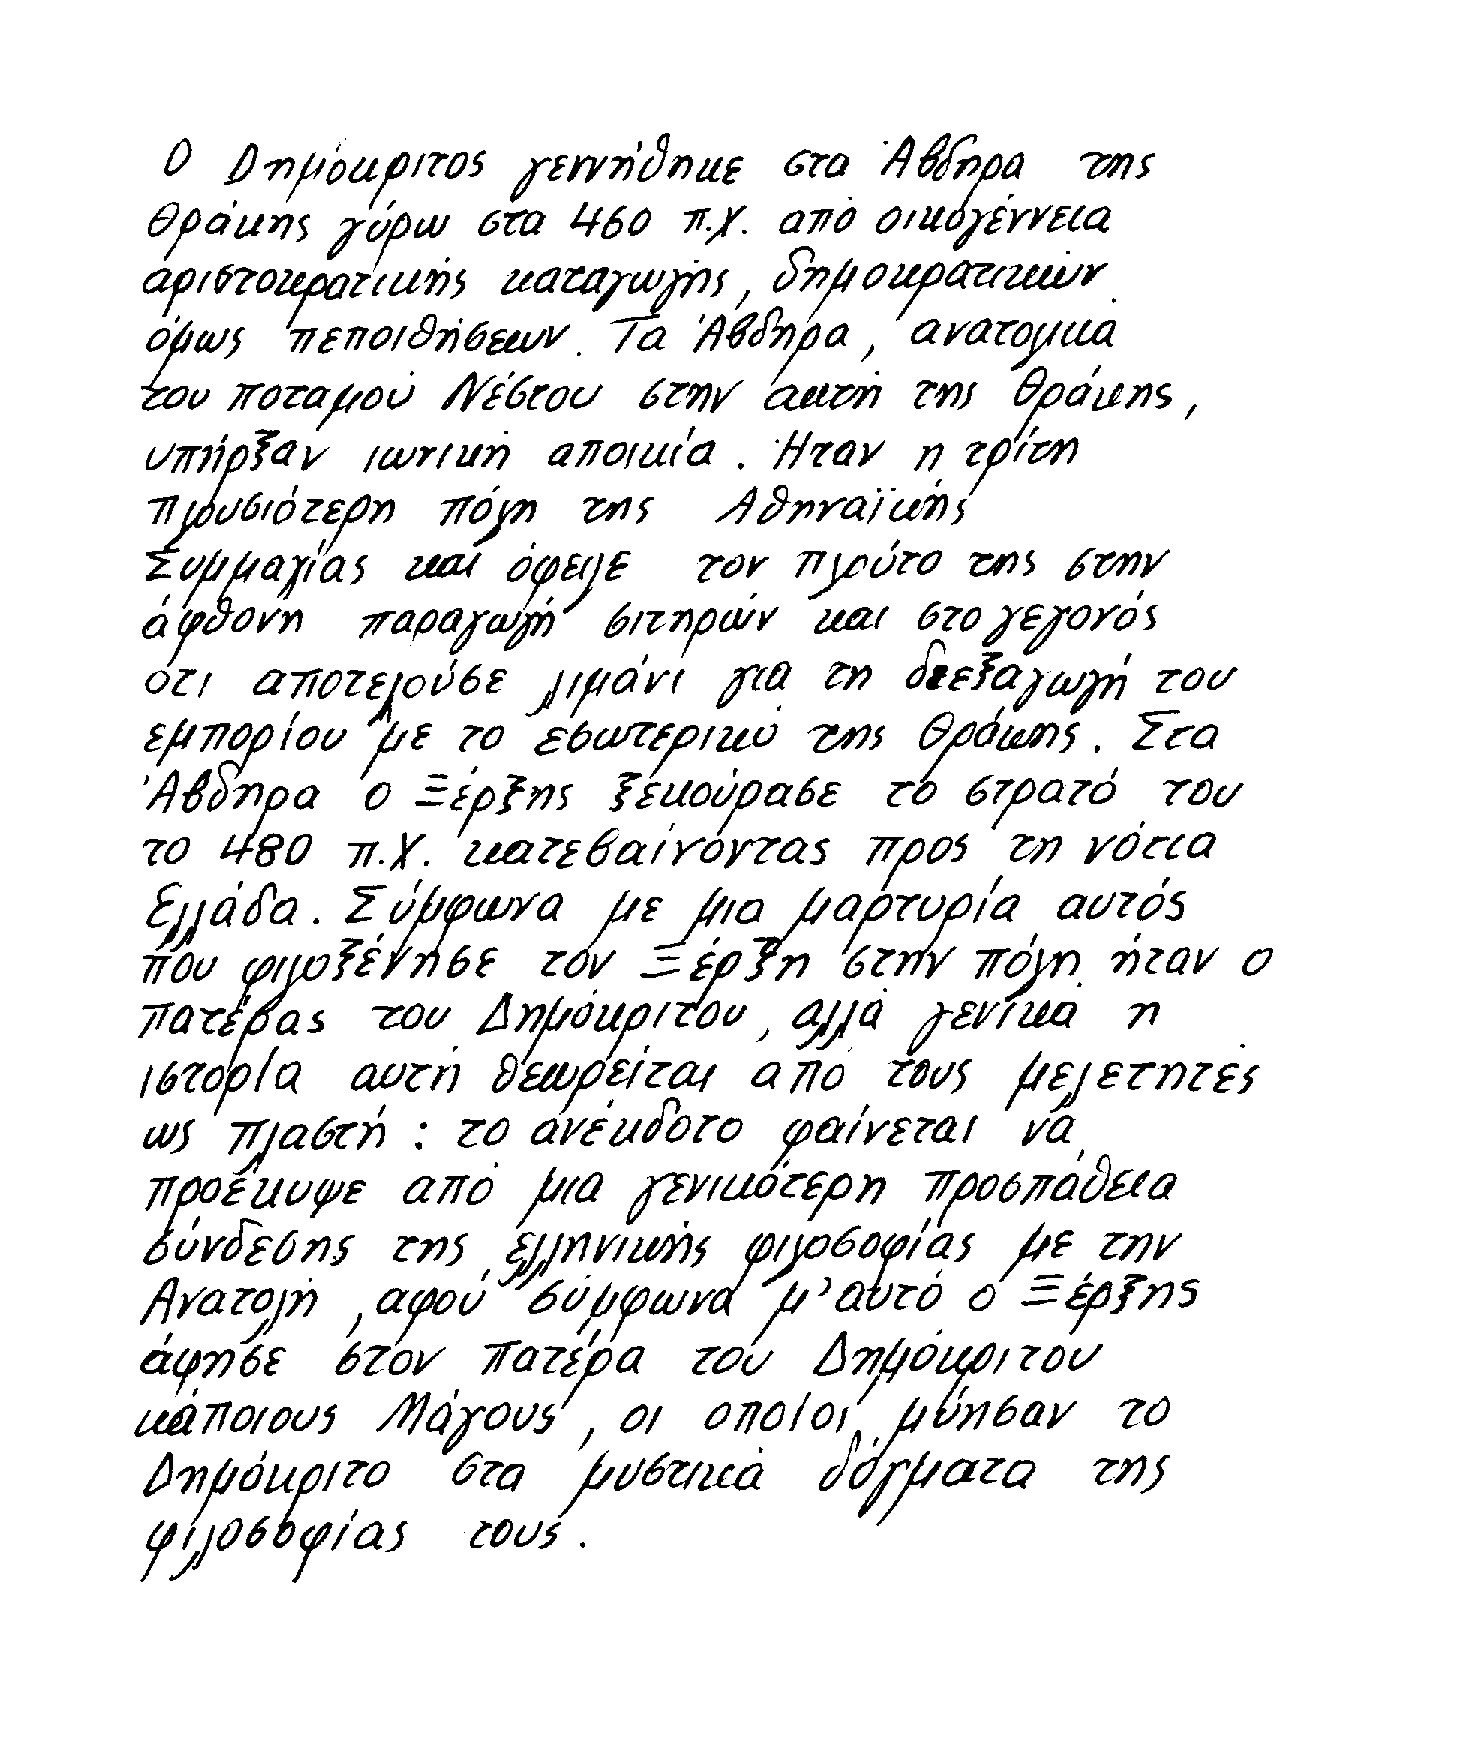 Ο Δημόκριτος γεννήθηκε στα Άβδηρα της
Θράκης γύρω στα 460 π.Χ. από οικογέννεια
αριστοκρατικής καταγωγής, δημοκρατικών
όμως πεποιθήσεων. Τα Άβδηρα, ανατολικά
του ποταμού Νέστου στην ακτή της Θράκης,
υπήρξαν ιωνική αποικία. Ήταν η τρίτη
πλουσιότερη πόλη της Αθηναϊκής
Συμμαχίας και όφειλε τον πλούτο της στην
άφθονη παραγωγή σιτηρών και στο γεγονός
ότι αποτελούσε λιμάνι για τη διεξαγωγή του
εμπορίου με το εσωτερικό της Θράκης. Στα
Άβδηρα ο Ξέρξης ξεκούρασε το στρατό του
το 480 π.Χ. κατεβαίνοντας προς τη νότια
Ελλάδα. Σύμφωνα με μια μαρτυρία αυτός
που φιλοξένησε τον Ξέρξη στην πόλη ήταν ο
πατέρας του Δημόκριτου, αλλά γενικά η
ιστορία αυτή θεωρείται από τους μελετητές
ως πλαστή : το ανέκδοτο φαίνεται να
προέκυψε από μια γενικότερη προσπάθεια
σύνδεσης της ελληνικής φιλοσοφίας με την
Ανατολή, αφού σύμφωνα μ' αυτό ο Ξέρξης
άφησε στον πατέρα του Δημόκριτου
κάποιους Μάγους, οι οποίοι μύησαν το
Δημόκριτο στα μυστικά δόγματα της
φιλοσοφίας τους.